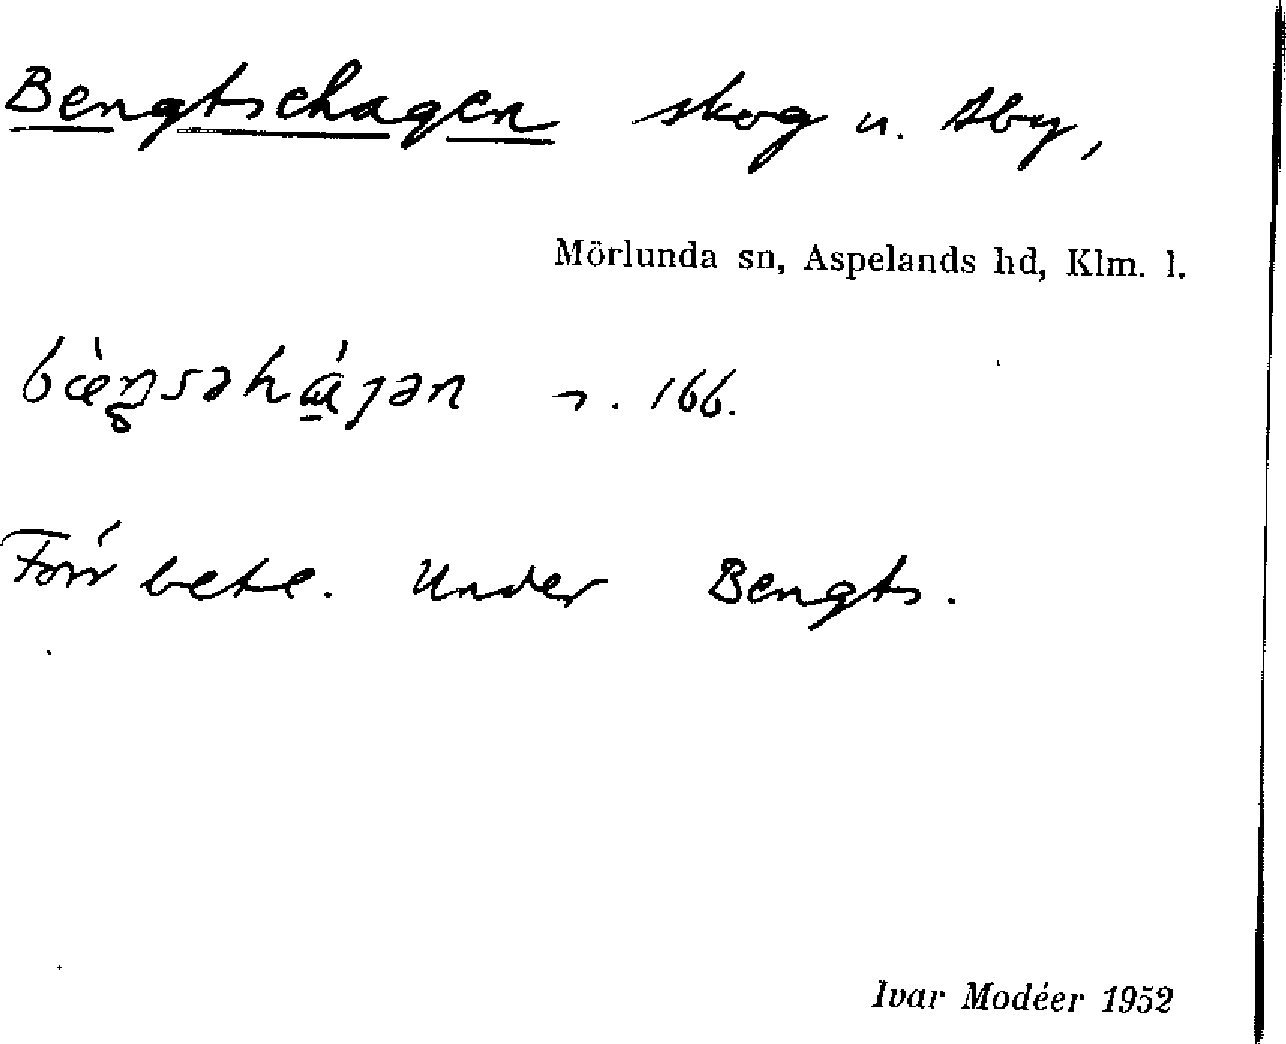 Bengtsehagen skog u. Åby,
Mörlunda sn, Aspelands hd, Klm. l.
bæ̀ŋsəhá̱ɡən ¬. 166.
Förr bete. Under Bengts.
Ivar Modéer 1952